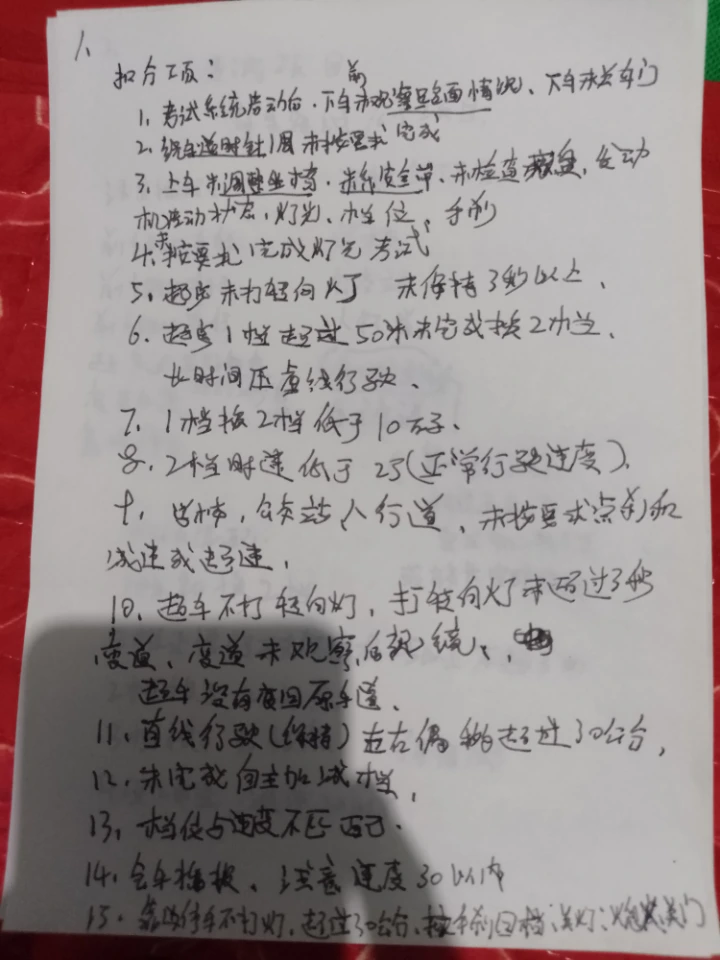 1、
扣分项：
1、考试系统启动后、下车前未观察且全面情况、下车未关车门
2、绕车逆时针1周未按要求完成
3、上车未调整坐椅、未系安全带、未检查 发动
机启动状态、灯光、档位、手刹
4、未按要求完成灯光考试
5、起步未打转向灯 未保持3秒以上、
6、起步1档超过50米未完成换2档、
长时间压虚线行驶、
7、1档换2档低于10万子、
8、2档时速低于25(正常行驶速度)、
9、学校，公交站、人行道、未按要求点刹和
减速或超速、
10、超车不打转向灯，打转向灯未超过3秒
变道、变道未观察后视镜、
超车没有变回原车道、
11、直线行驶(保持)左右偏移超过30公分，
12、未完成自主加减档、
13、档位与速度不匹配、
14、会车 、注意速度30以内
15、靠边停车不打灯，超过30公分、拉手刹回档、关灯、熄火关门